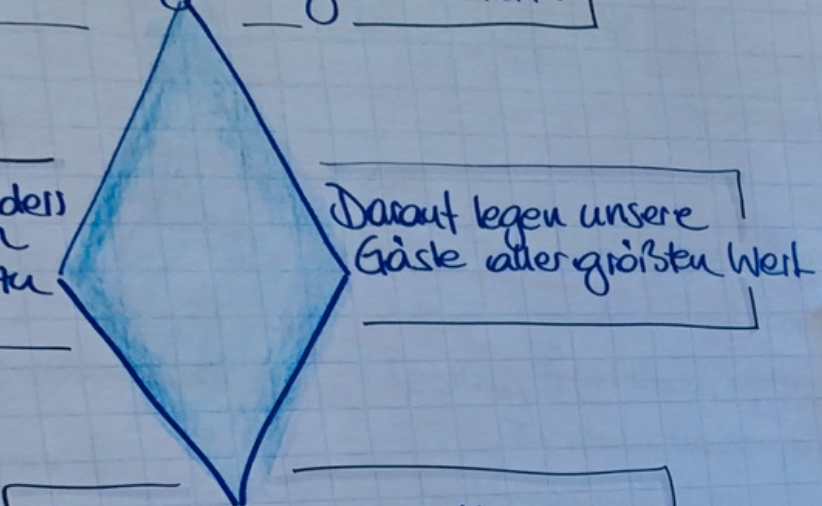 Darauf legen unsere
Gäste allergrößten Wert